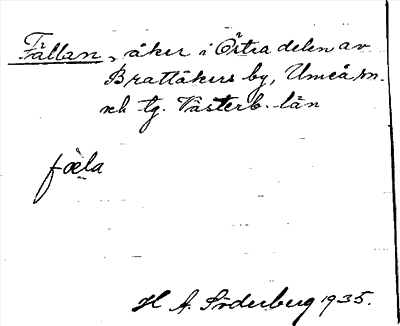 Fällan, åker i Östra delen av
Brattåkers by, Umeå sn.
och tg. Västerb. län
fœla
H A. Söderberg 1935.